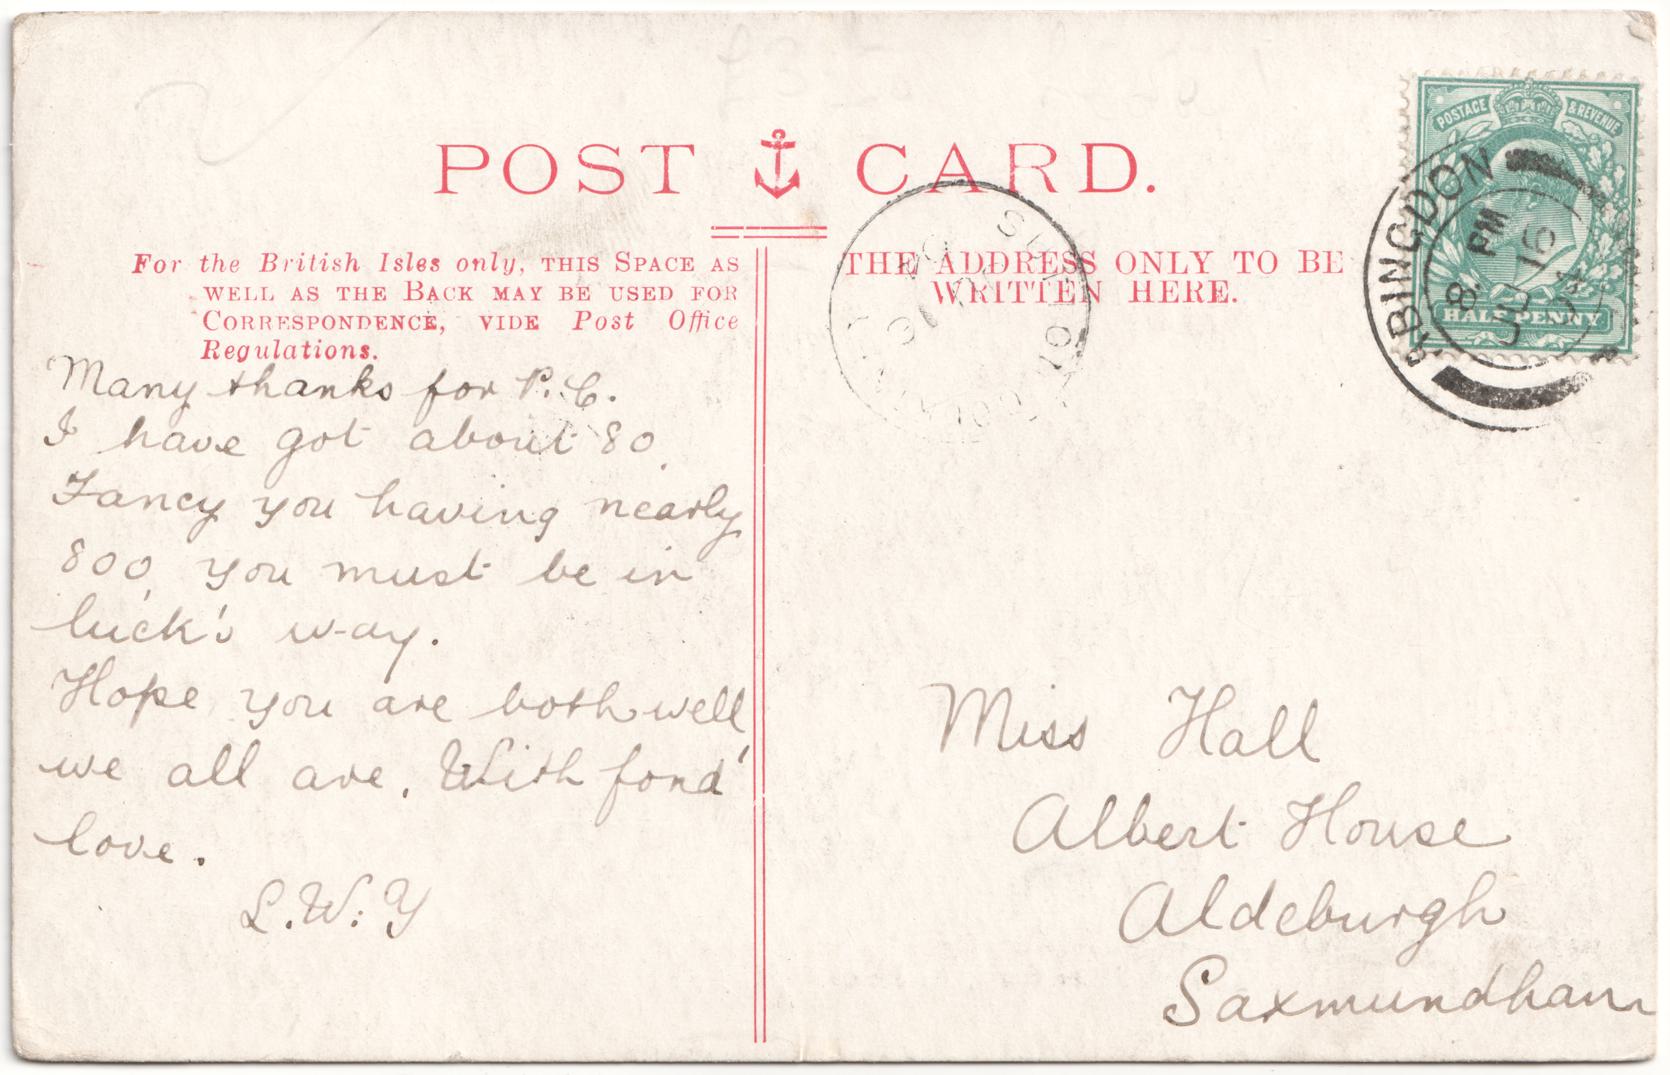 POST CARD.
For the British Isles only, THIS SPACE AS
WELL AS THE BACK MAY BE USED FOR
CORRESPONDENCE, VIDE Post Office
Regulations.
THE ADDRESS ONLY TO BE
WRITTEN HERE.
POSTAGE & REVENUE
HALFPENNY
ABINGDON
8. PM
16
04
Many thanks for P.C.
I have got about 80.
Fancy you having nearly
800, you must be in
luck's way.
Hope you are both well
we all are. With fond
love.
L.W.Y
Miss Hall
Albert House
Aldeburgh
Saxmundham